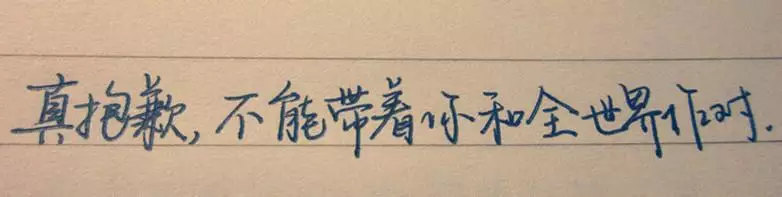 真抱歉,不能带着你和全世界作对.